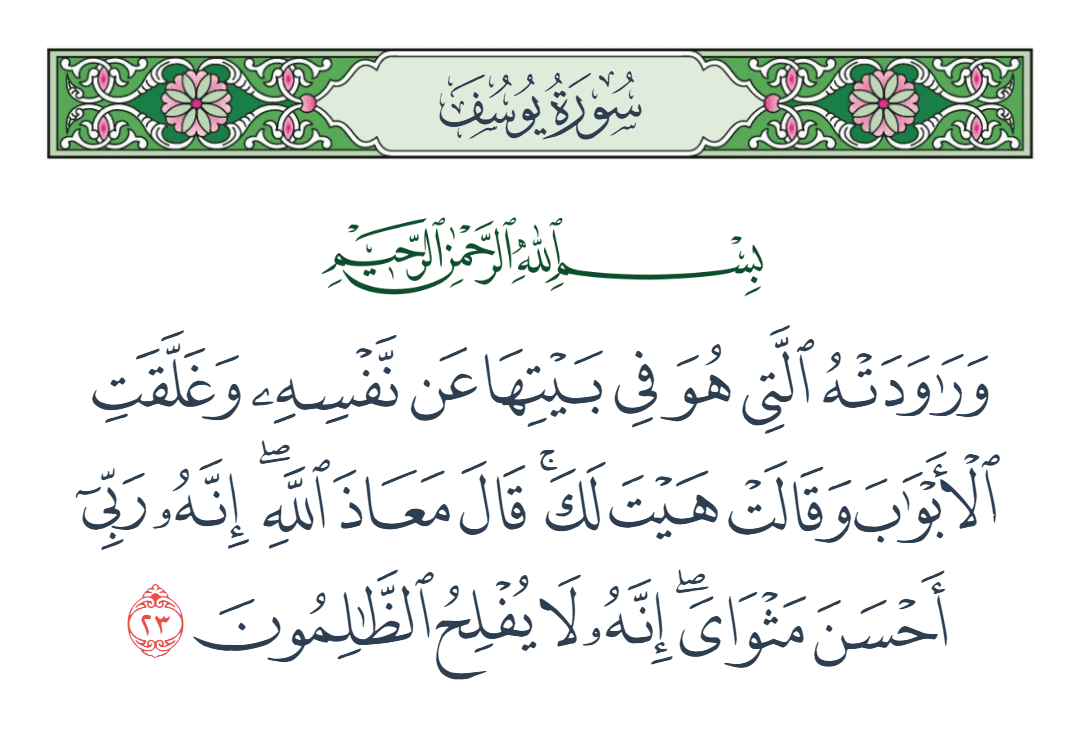 سُورَةُ يُوسُفَ
بِسْمِ ٱللَّهِ ٱلرَّحْمَٰنِ ٱلرَّحِيمِ
وَرَٰوَدَتْهُ ٱلَّتِى هُوَ فِى بَيْتِهَا عَن نَّفْسِهِۦ وَغَلَّقَتِ
ٱلْأَبْوَٰبَ وَقَالَتْ هَيْتَ لَكَ ۚ قَالَ مَعَاذَ ٱللَّهِ ۖ إِنَّهُۥ رَبِّىٓ
أَحْسَنَ مَثْوَاىَ ۖ إِنَّهُۥ لَا يُفْلِحُ ٱلظَّٰلِمُونَ ٢٣